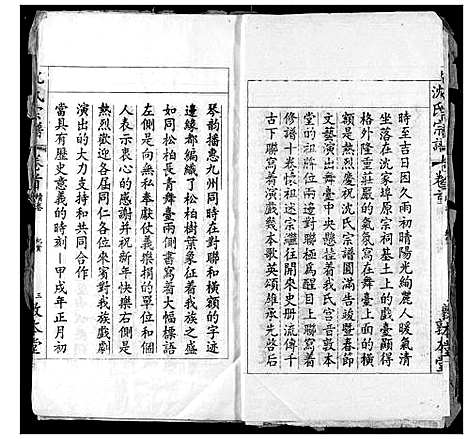 沈氏宗譜
卷首
時至吉日因久雨初晴陽光絢麗人暖氣清
坐落在沈家埠原宗祠基土上的戲臺顯得
格外隆重莊嚴的氣氛寫在舞臺上面一條
祝願是熱烈慶祝沈氏宗譜圓滿告竣暨春節
文藝演出舞臺中央懸挂着我氏宮音敦本
堂的祖諱位兩邊對聯極爲醒目上聯寫着
修譜十卷懷祖述宗繼往開來史册流傳千
古下聯寫着演戲幾本歌英頌雄承先啓后
敦本堂
琴韵播恧九州同時在對聯和橫額的字迹
邊緣都編織了松柏樹葉象征着我族之盛
如同松柏長青舞臺兩側書寫着大幅標語
左側是向無私奉獻仗義樂捐的單位和個
人表示衷心的感謝并祝新年快樂右側是
熱烈歡迎各屆同仁各位來賓對我族戲劇
演出的大力支持和共同合作
當具有歷史意義的時刻—甲戌年正月初
氏宗譜
卷首
三
敦本堂